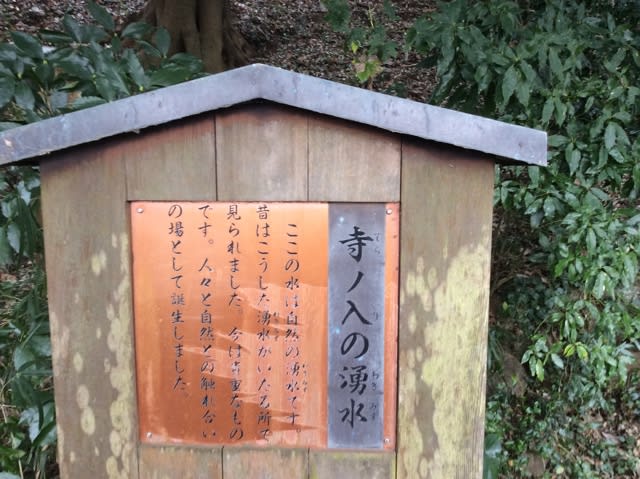 寺ノ入の湧水
ここの水は自然の湧水です。
昔はこうした湧水がいたる所で
見られました。今は貴重なもの
です。人々と自然との触れ合い
の場として誕生しました。